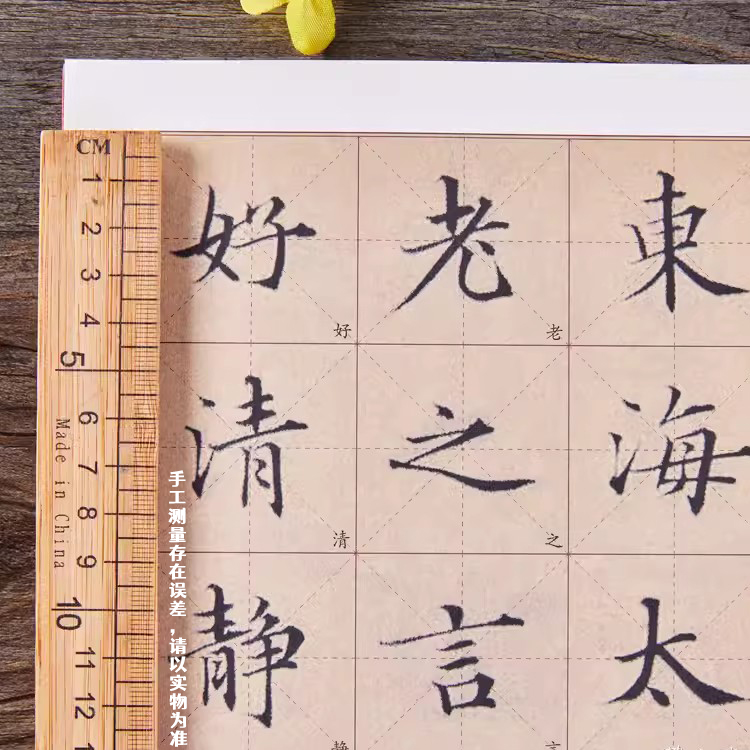 CM
1
2
3
4
5
6
7
8
9
10
11
12
Made in China
手工测量存在误差，请以实物为准
好 老 東
好 老
清 之 海
清 之
静 言 太
静 言